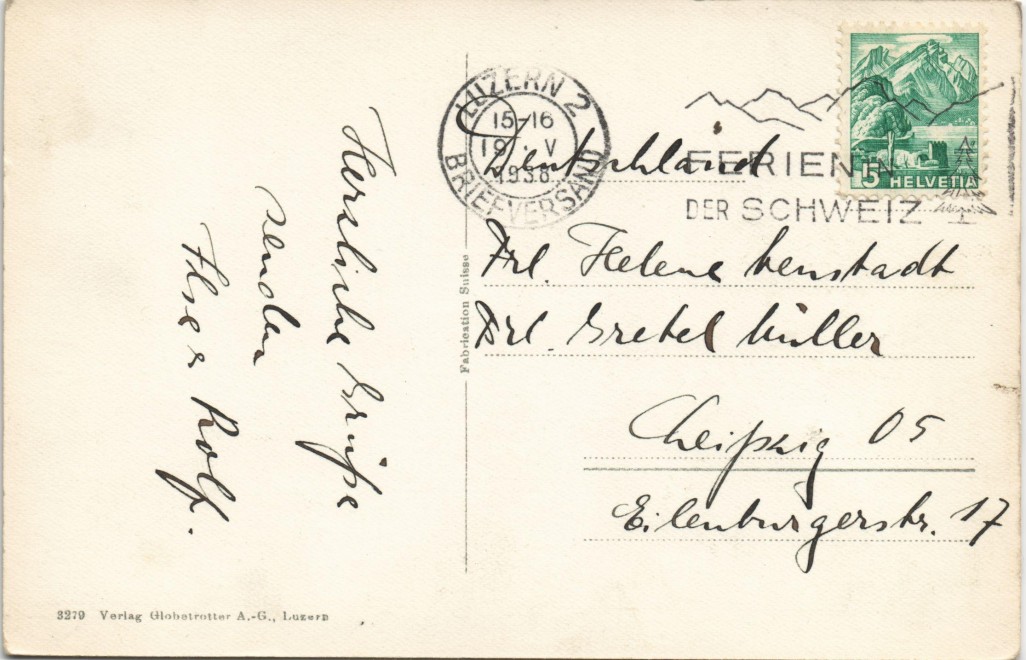 Herzliche Grüße
senden
Ilse & Rolf.
LUZERN 2
15-16
19. V
1938
BRIEFVERSAND
FERIEN IN
DER SCHWEIZ
5 HELVETIA
Deutschland
Frl. Helene
Frl. Gretel Müller
Leipzig O5
Eilenburgerstr. 17
Fabrication Suisse
3279 Verlag Globetrotter A.-G., Luzern